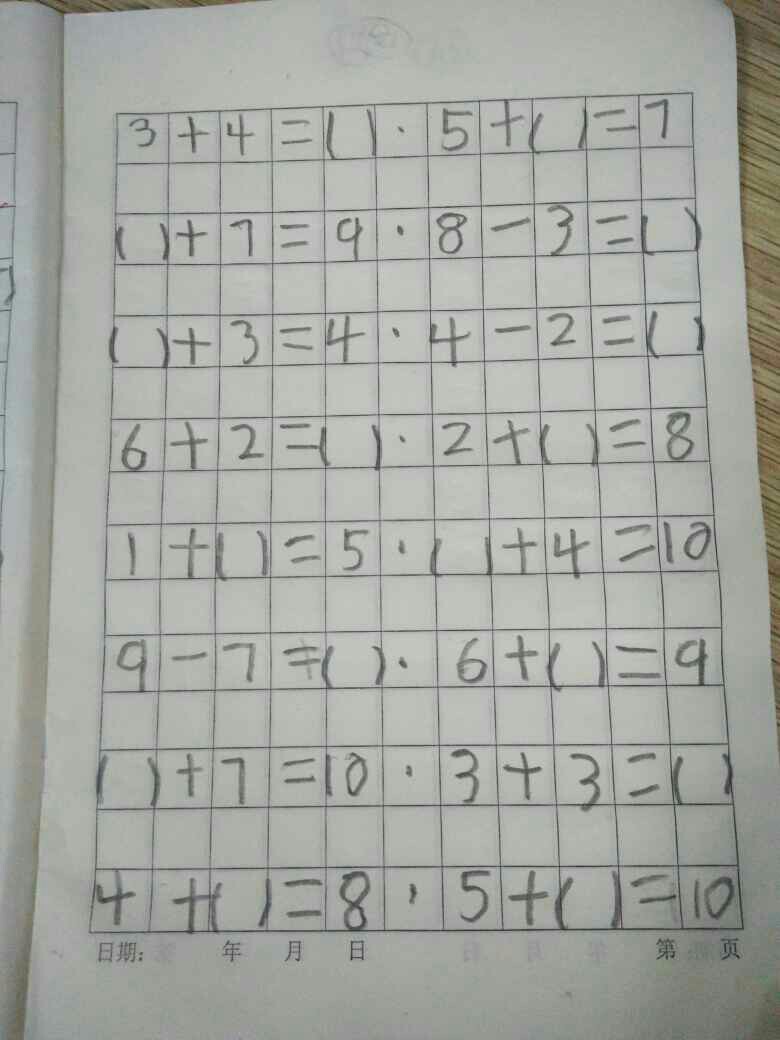 3+4=()·5+()=7
()+7=9·8-3=()
()+3=4·4-2=()
6+2=()·2+()=8
1+()=5·()+4=10
9-7=()·6+()=9
()+7=10·3+3=()
4+()=8·5+()=10
日期: 年 月 日 第 页